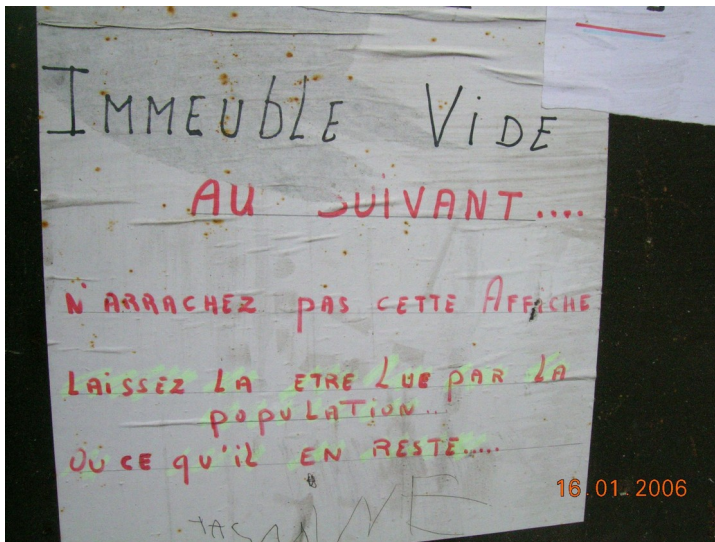 IMMEUbLE VIDE
AU SUIVANT....
N'ARRACHEZ PAS CETTE AFFICHE
LAISSEZ LA ETRE LUE PAR LA
POPULATION..
OU CE qU'iL EN RESTE.....
16 01 2006